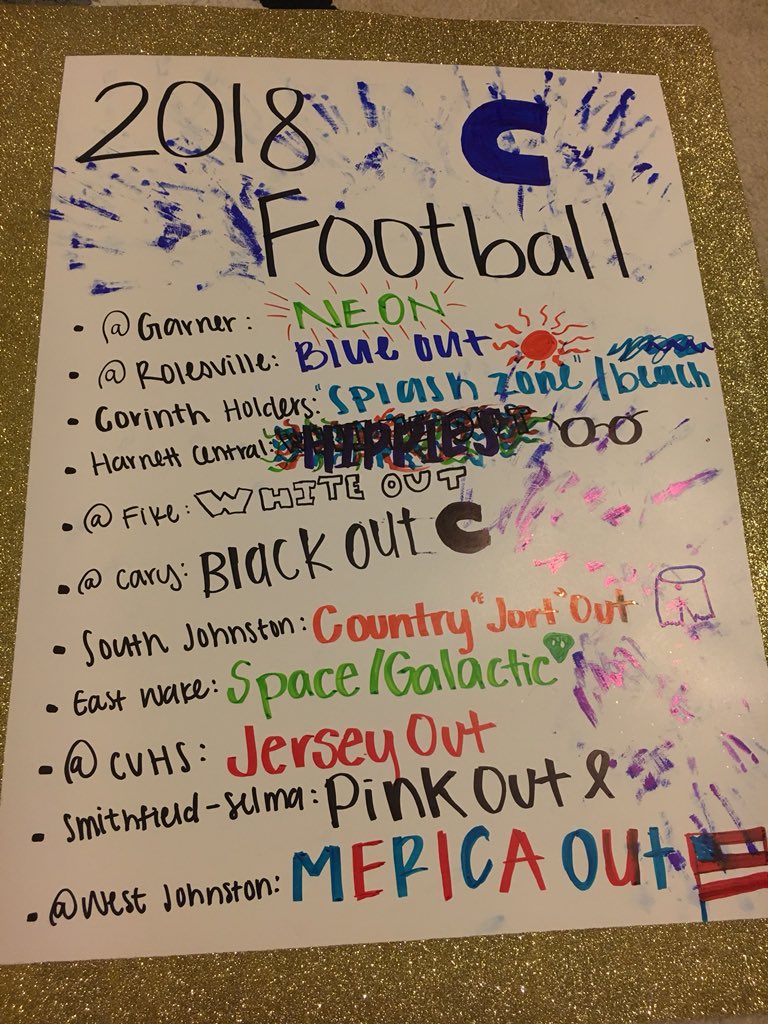 2018 C
Football
• @ Garner: NEON
• @ Rolesville: Blue out
• Corinth Holders: "splash zone" / beach
• Harnett Central: HIPPIES
• @ Fike: WHITE OUT
• @ Cary: Black out C
• South Johnston: Country "Jort" Out
• East Wake: Space/Galactic
• @ CVHS: Jersey Out
• Smithfield-Selma: Pink Out
• @West Johnston: MERICA OUt